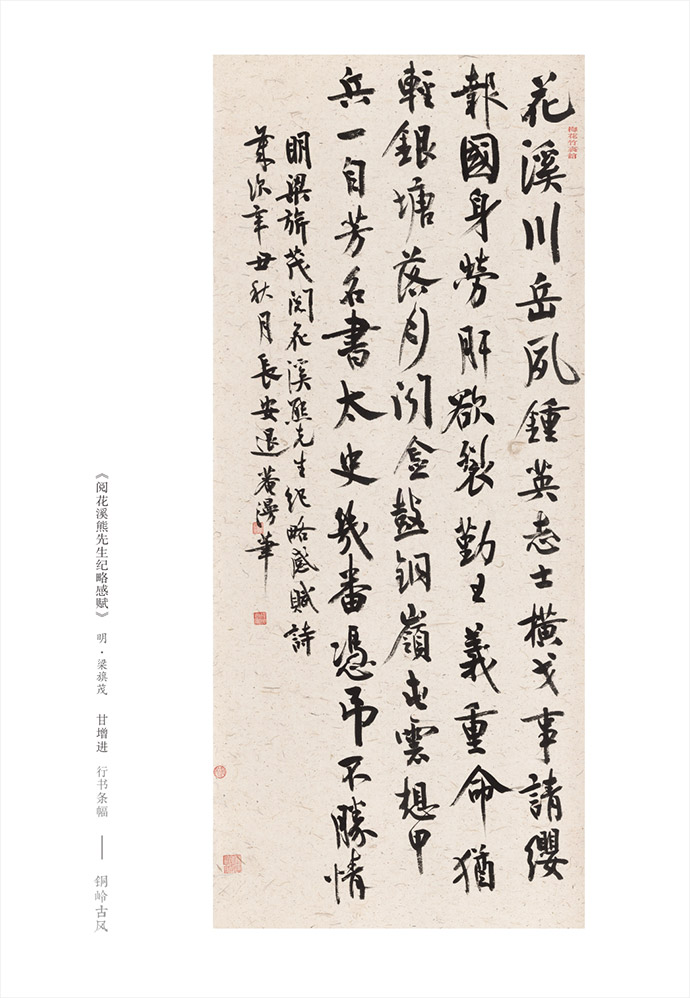 花溪川岳夙鍾英志士横戈事請纓
報國身勞肝欲裂勤王義重命猶
輕銀塘落月闻金鼓銅嶺屯雲想甲
兵一自芳名書太史幾番憑吊不勝情
明梁旂茂閲花溪熊先生纪略感賦詩
歲次辛丑秋月長安退菴漫筆
梅花竹斋館
《阅花溪熊先生纪略感赋》 明·梁旗茂 甘增进 行书条幅 —— 铜岭古风